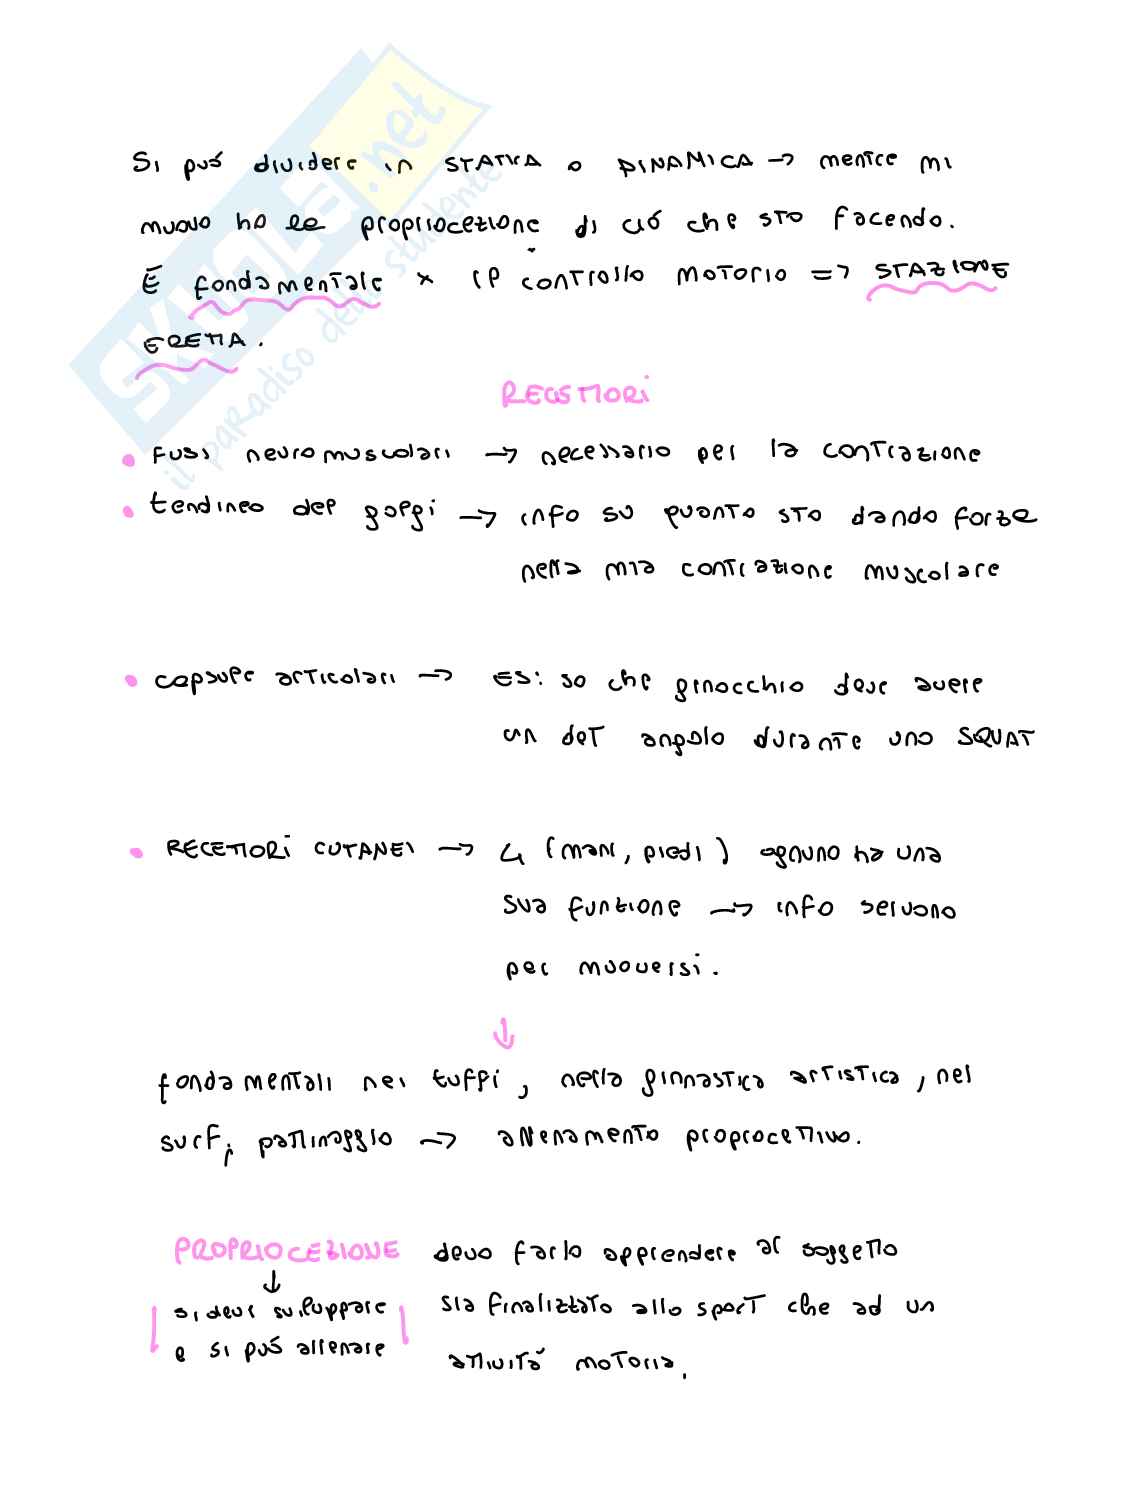 SKUOLA.net
il paradiso dello studente
Si può dividere in STATICA o DINAMICA → mentre mi
muovo ho la propriocezione di ciò che sto facendo.
È fondamentale x il controllo motorio => STAZIONE
ERETTA.
RECETTORI
• Fusi neuromuscolari → necessario per la contrazione
• tendineo del golgi → info su quanto sto dando forza
nella mia contrazione muscolare
• capsule articolari → ES: so che ginocchio deve avere
un det angolo durante uno SQUAT
• RECETTORI CUTANEI → 4 (mani, piedi) ognuno ha una
sua funzione → info servono
per muoversi.
↓
fondamentali nei tuffi, nella ginnastica artistica, nel
surf, pattinaggio → allenamento propriocettivo.
PROPRIOCEZIONE devo farlo apprendere al soggetto
↓
si deve sviluppare sia finalizzato allo sport che ad un
e si può allenare attività motoria.